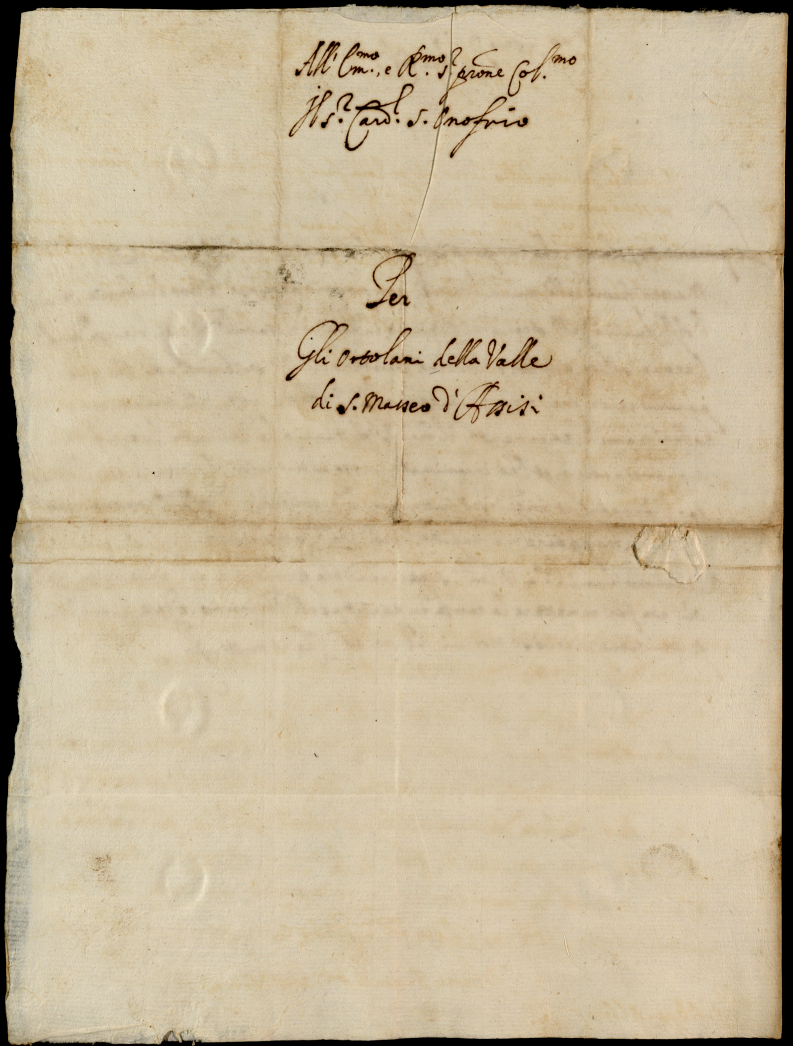 All' Em.mo, e R.mo S.r prone Col.mo
Il S.r Card.l S. Onofrio
Per
Gli Ortolani della Valle
di S. Masseo d'Assisi